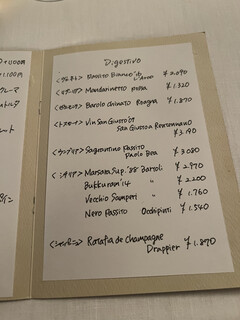 Digestivo
Passito Bianco di
¥ 2.090
Mandarinetto
¥ 1.320
Barolo chinato Roagna ¥ 1.870
<トスカーナ> Vin San Giusto '07
San Giusto a Rentennano
¥ 3.190
<ウンブリア> Sagrantino Passito
Paolo Bea ¥ 3.080
<シチリア> Marsala Sup. '88 Bartoli ¥ 2.970
Bukkuram '14 〃 ¥ 2.200
Vecchio Samperi 〃 ¥ 1.760
Nero Passito Occhipinti ¥ 1.540
<シャンパーニュ> Ratafia de Champagne
Drappier ¥ 1.870
1.100円